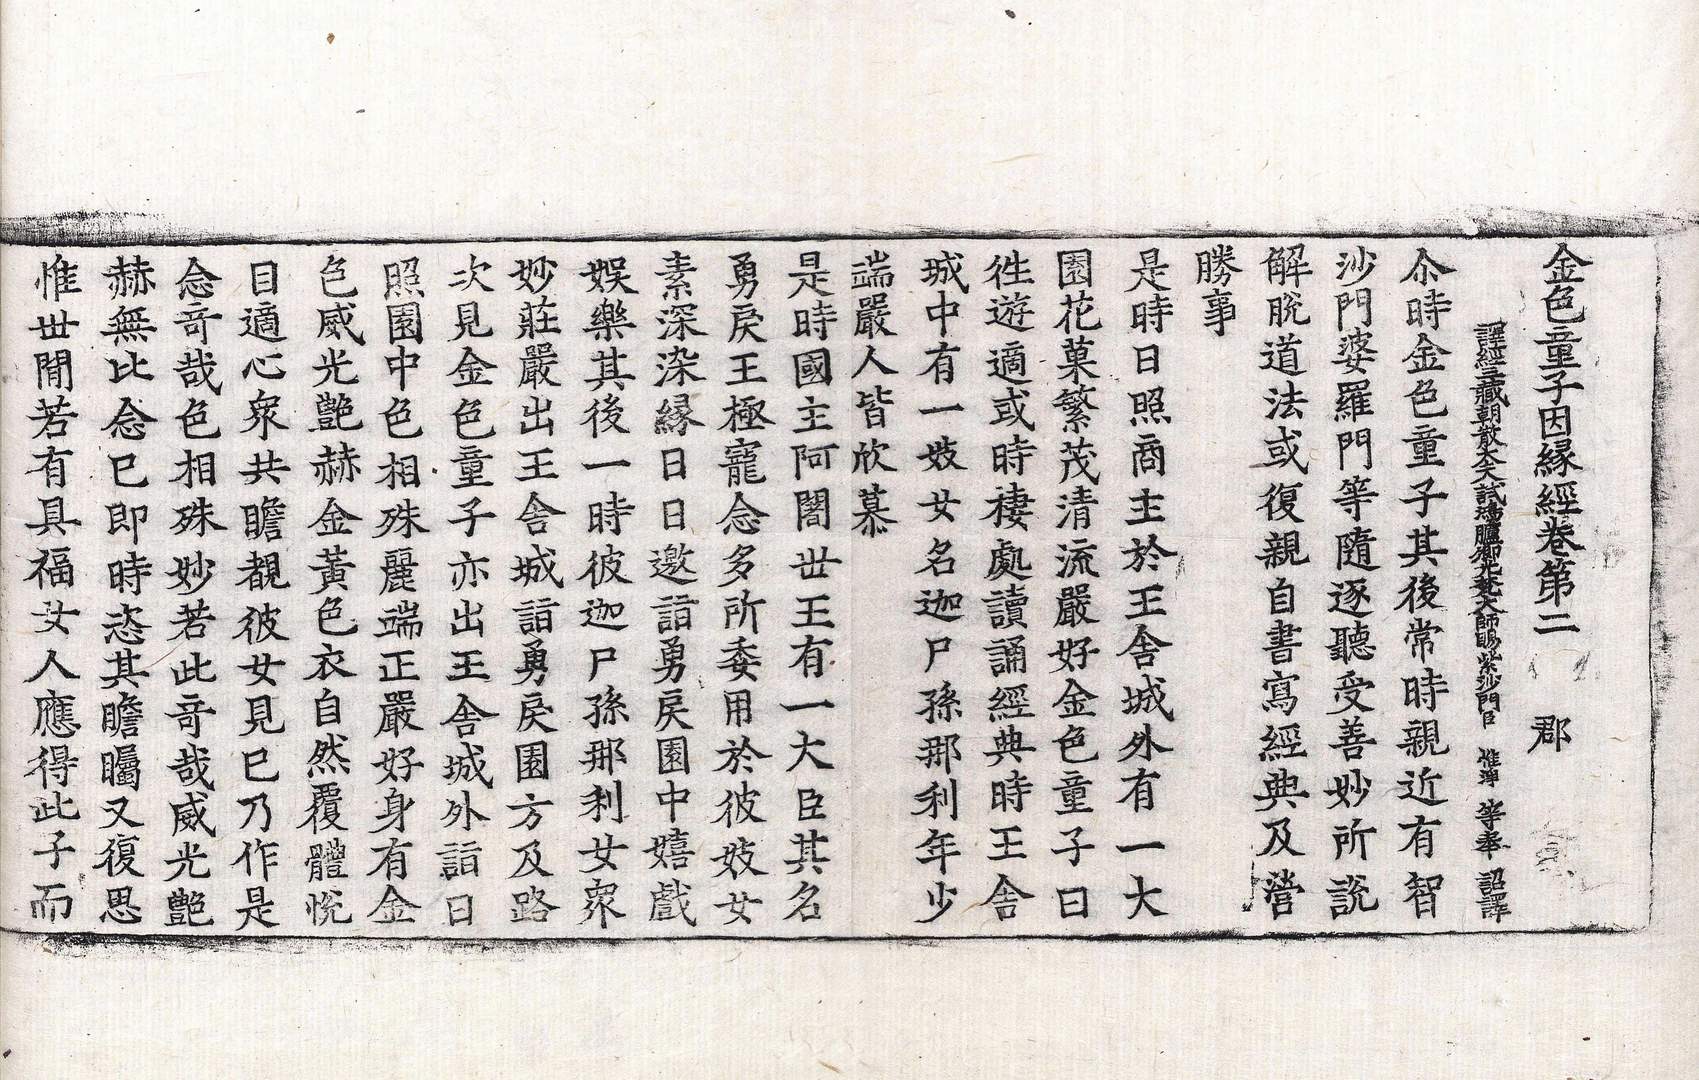 金色童子因縁經卷第二 郡
譯經三藏朝散大夫試鴻臚卿光梵大師賜紫沙門臣 惟淨 等奉 詔譯
尒時金色童子其後常時親近有智
沙門婆羅門等隨逐聽受善妙所說
解脫道法或復親自書寫經典及營
勝事
是時日照商主於王舍城外有一大
園花菓繁茂清流嚴好金色童子日
徃遊適或時棲處讀誦經典時王舍
城中有一妓女名迦尸孫那利年少
端嚴人皆欣慕
是時國主阿闍世王有一大臣其名
勇戾王極寵念多所委用於彼妓女
素深染縁日日邀詣勇戾園中嬉戲
娛樂其後一時彼迦尸孫那利女衆
妙莊嚴出王舍城詣勇戾園方及路
次見金色童子亦出王舍城外詣日
照園中色相殊麗端正嚴好身有金
色威光艶赫金黃色衣自然覆體悅
目適心衆共瞻覩彼女見已乃作是
念竒哉色相殊妙若此竒哉威光艶
赫無比念已即時恣其瞻矚又復思
惟世間若有具福女人應得此子而